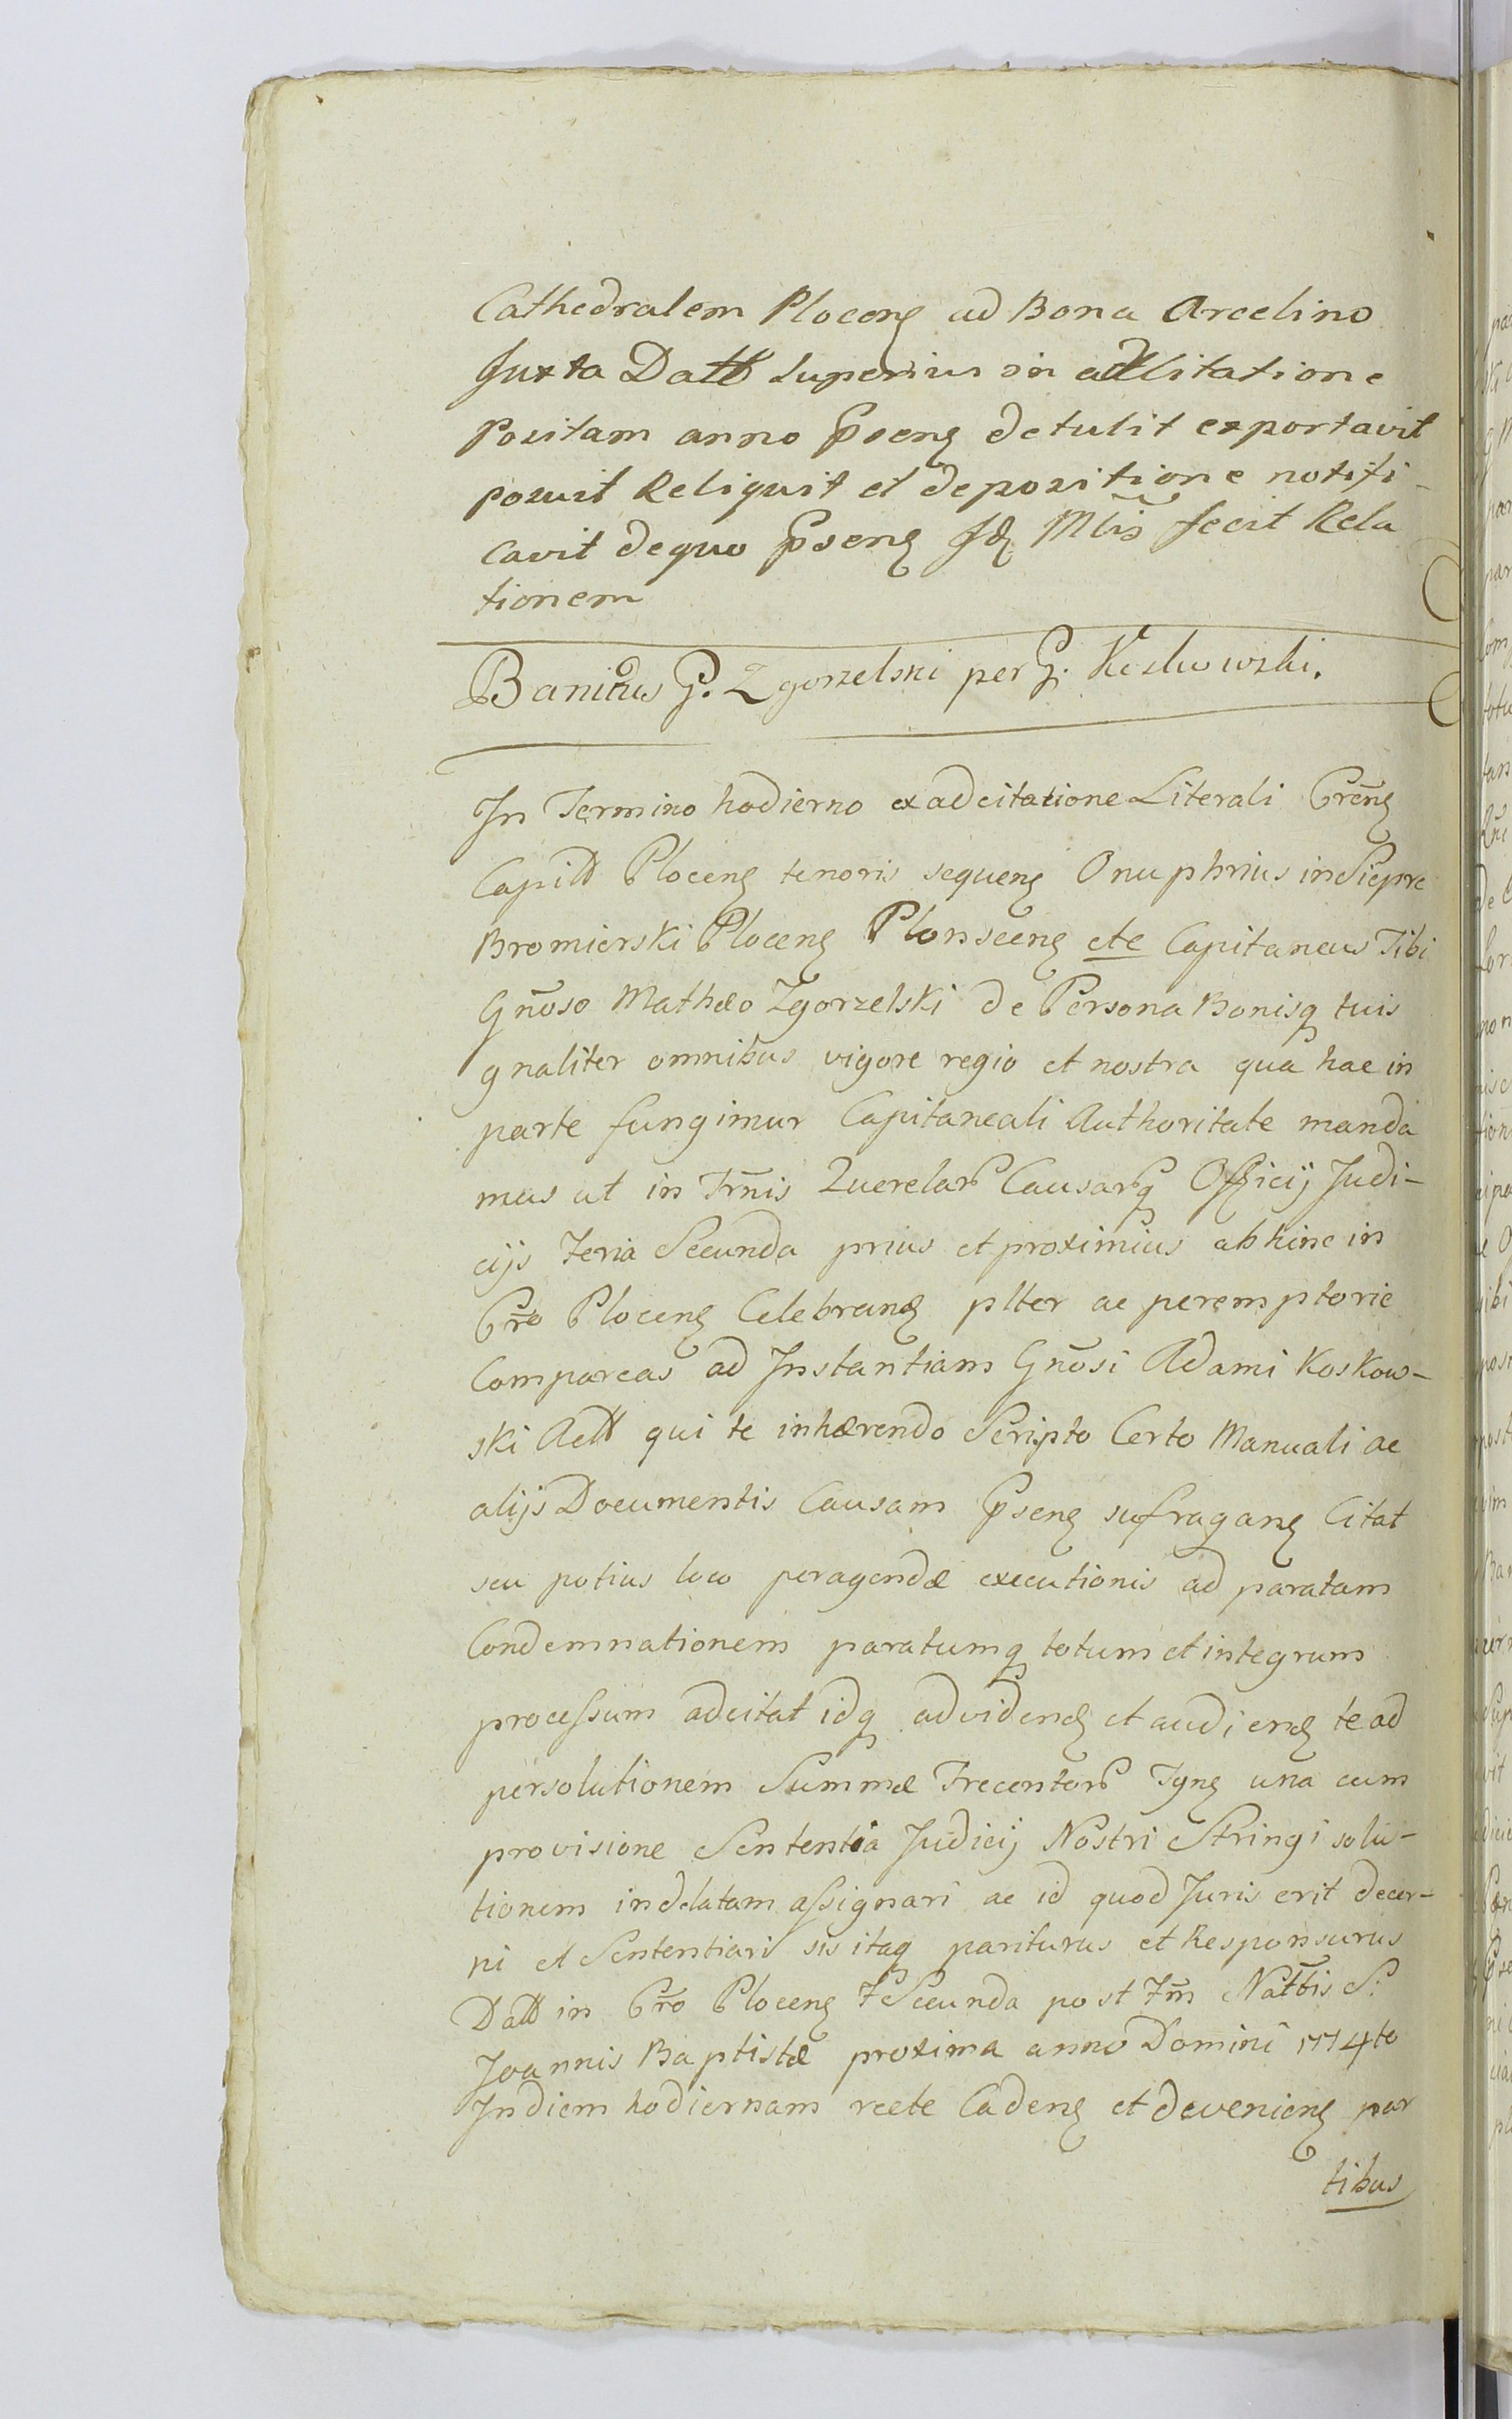 Cathedralem Plocens ad Bona Arcelino
Juxta Datt superius in adCitatione
Positam anno Psens detulit exportavit
posuit Reliquit et depositione notifi-
cavit de quo Psens Jd Mlis fecit Rela
tionem
Banitus G. Zgorzelski per G. Koskowski.
In Termino hodierno ex adcitatione Literali Crens
Capitt Plocens tenoris sequens Onuphrius in Siepre
Bromierski Plocens Plonscens etc Capitaneus Tibi
Gnoso Mathæo Zgorzelski de Persona Bonisq tuis
gnaliter omnibus vigore regio et nostra qua hac in
parte fungimur Capitaneali Authoritate manda
mus ut in Trnis Querelar Causarq Officij Judi-
cijs Feria Secunda prius et proximius abhinc in
Cro Plocens Celebrand plter ac peremptorie
Compareas ad Instantiam Gnosi Adami Koskow-
ski Actt qui te inhærendo Scripto Certo Manuali ac
alijs Documentis Causam Psens sufragans Citat
seu potius loco peragendæ executionis ad paratam
Condemnationem paratumq totum et integrum
processum adcitat idq ad vidend et audiend te ad
persolutionem Summæ Trecentor Tyns una cum
provisione Sententia Judicij Nostri Stringi solu-
tionem indelatam assignari ac id quod Juris erit decer-
ni et Sententiari sis itaq pariturus et Responsurus
Datt in Cro Plocens F Secunda post Fm Nattis S.
Joannis Baptistæ proxima anno Domini 1774to
In diem hodiernam recte Cadens et deveniens par
tibus